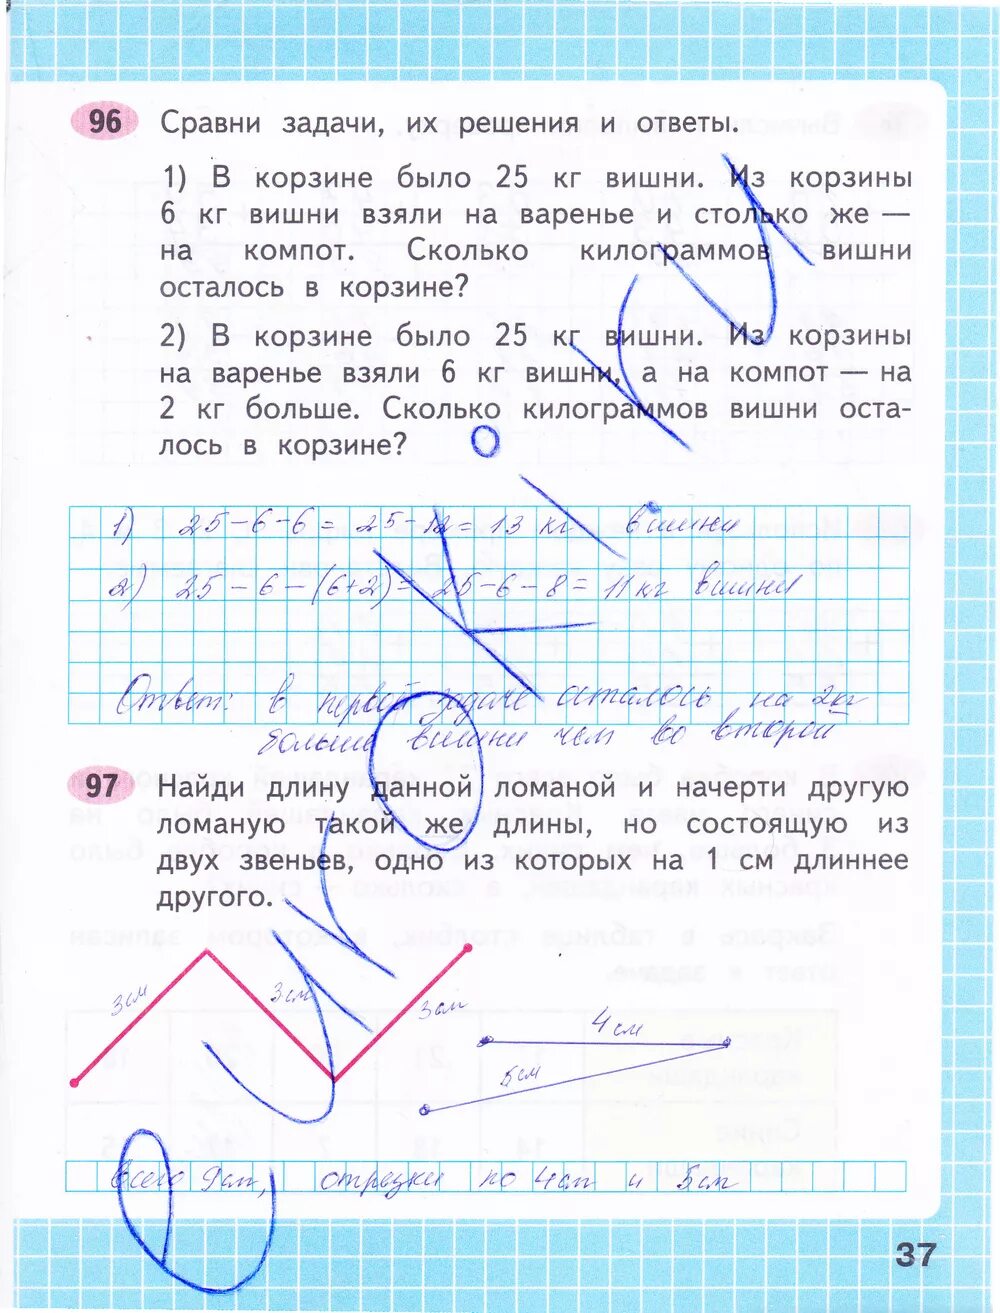 96 Сравни задачи, их решения и ответы.
1) В корзине было 25 кг вишни. Из корзины
6 кг вишни взяли на варенье и столько же —
на компот. Сколько килограммов вишни
осталось в корзине?
2) В корзине было 25 кг вишни. Из корзины
на варенье взяли 6 кг вишни, а на компот — на
2 кг больше. Сколько килограммов вишни оста-
лось в корзине?
1) 25-6-6= 25-12=13 кг вишни
2) 25-6-(6+2)= 25-6-8= 11кг вишни
Ответ: в первой задаче осталось на 2кг
больше вишни чем во второй
97 Найди длину данной ломаной и начерти другую
ломаную такой же длины, но состоящую из
двух звеньев, одно из которых на 1 см длиннее
другого.
3см 3см 3см
4см
5см
Всего 9см, отрезки по 4см и 5см
37